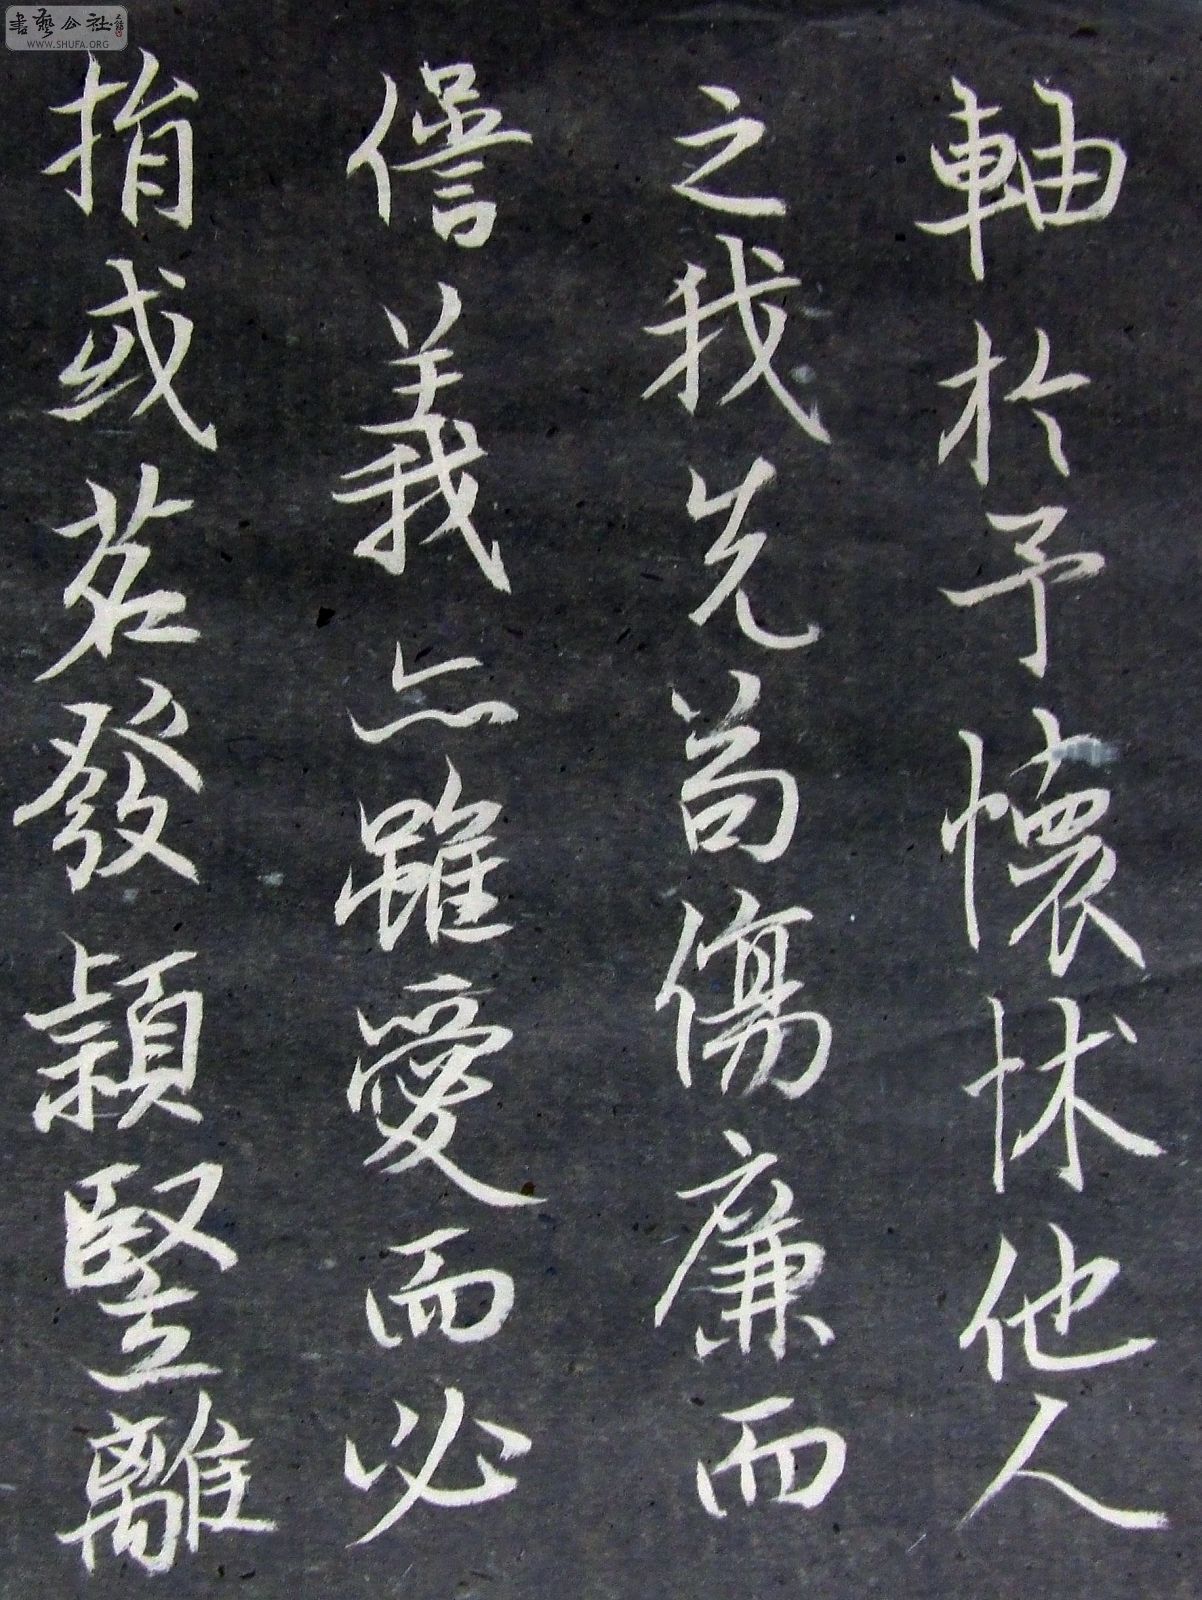 軸於予懷怵他人
之我先苟傷廉而
愆義亦雖愛而必
捐或苕發穎豎離
書藝公社
WWW.SHUFA.ORG